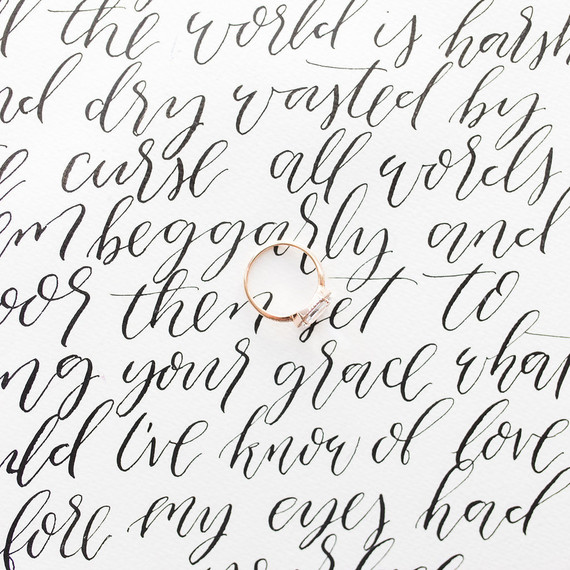 l the world is harsh
nd dry wasted by
e curse all words
em beggarly and
oor then yet to
ng your grace what
uld I've know of love
fore my eyes had